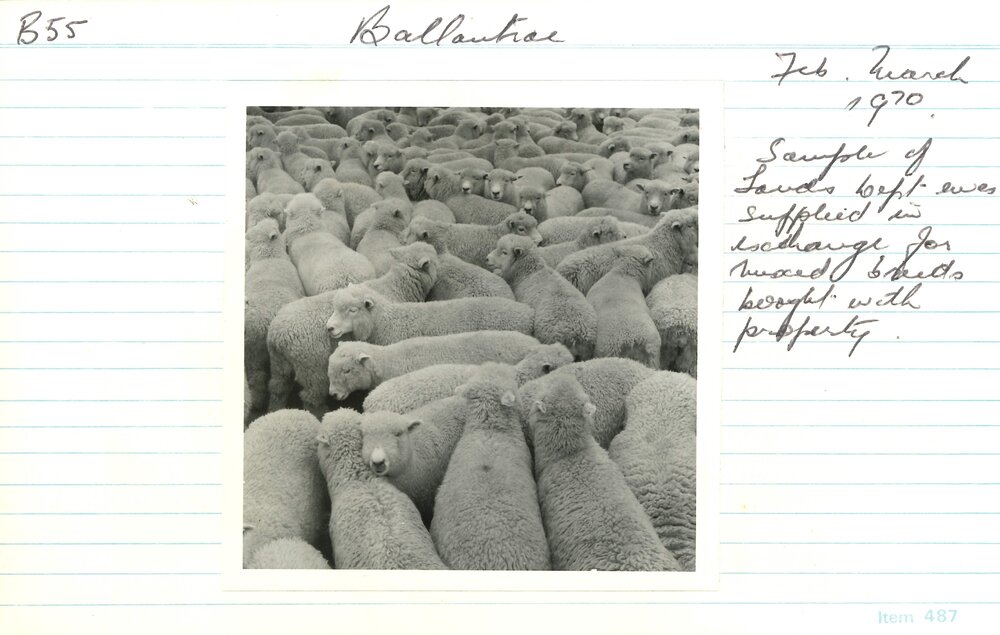 B55
Ballantrae
Feb. March
1970.
Sample of
Lands Dept ewes
supplied in
exchange for
mixed breeds
bought with
property.
Item 487